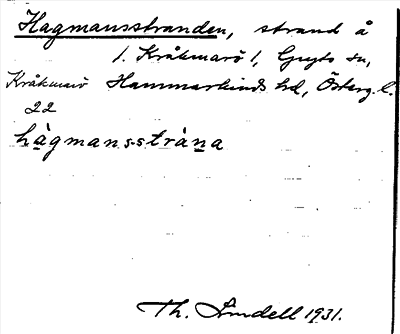 Hagmansstranden, strand å
1. Kråkmarö 1, Gryts sn,
Kråkmarö Hammarkinds hd, Österg. l.
22
hàgmansstràna
Th. Lindell 1931.